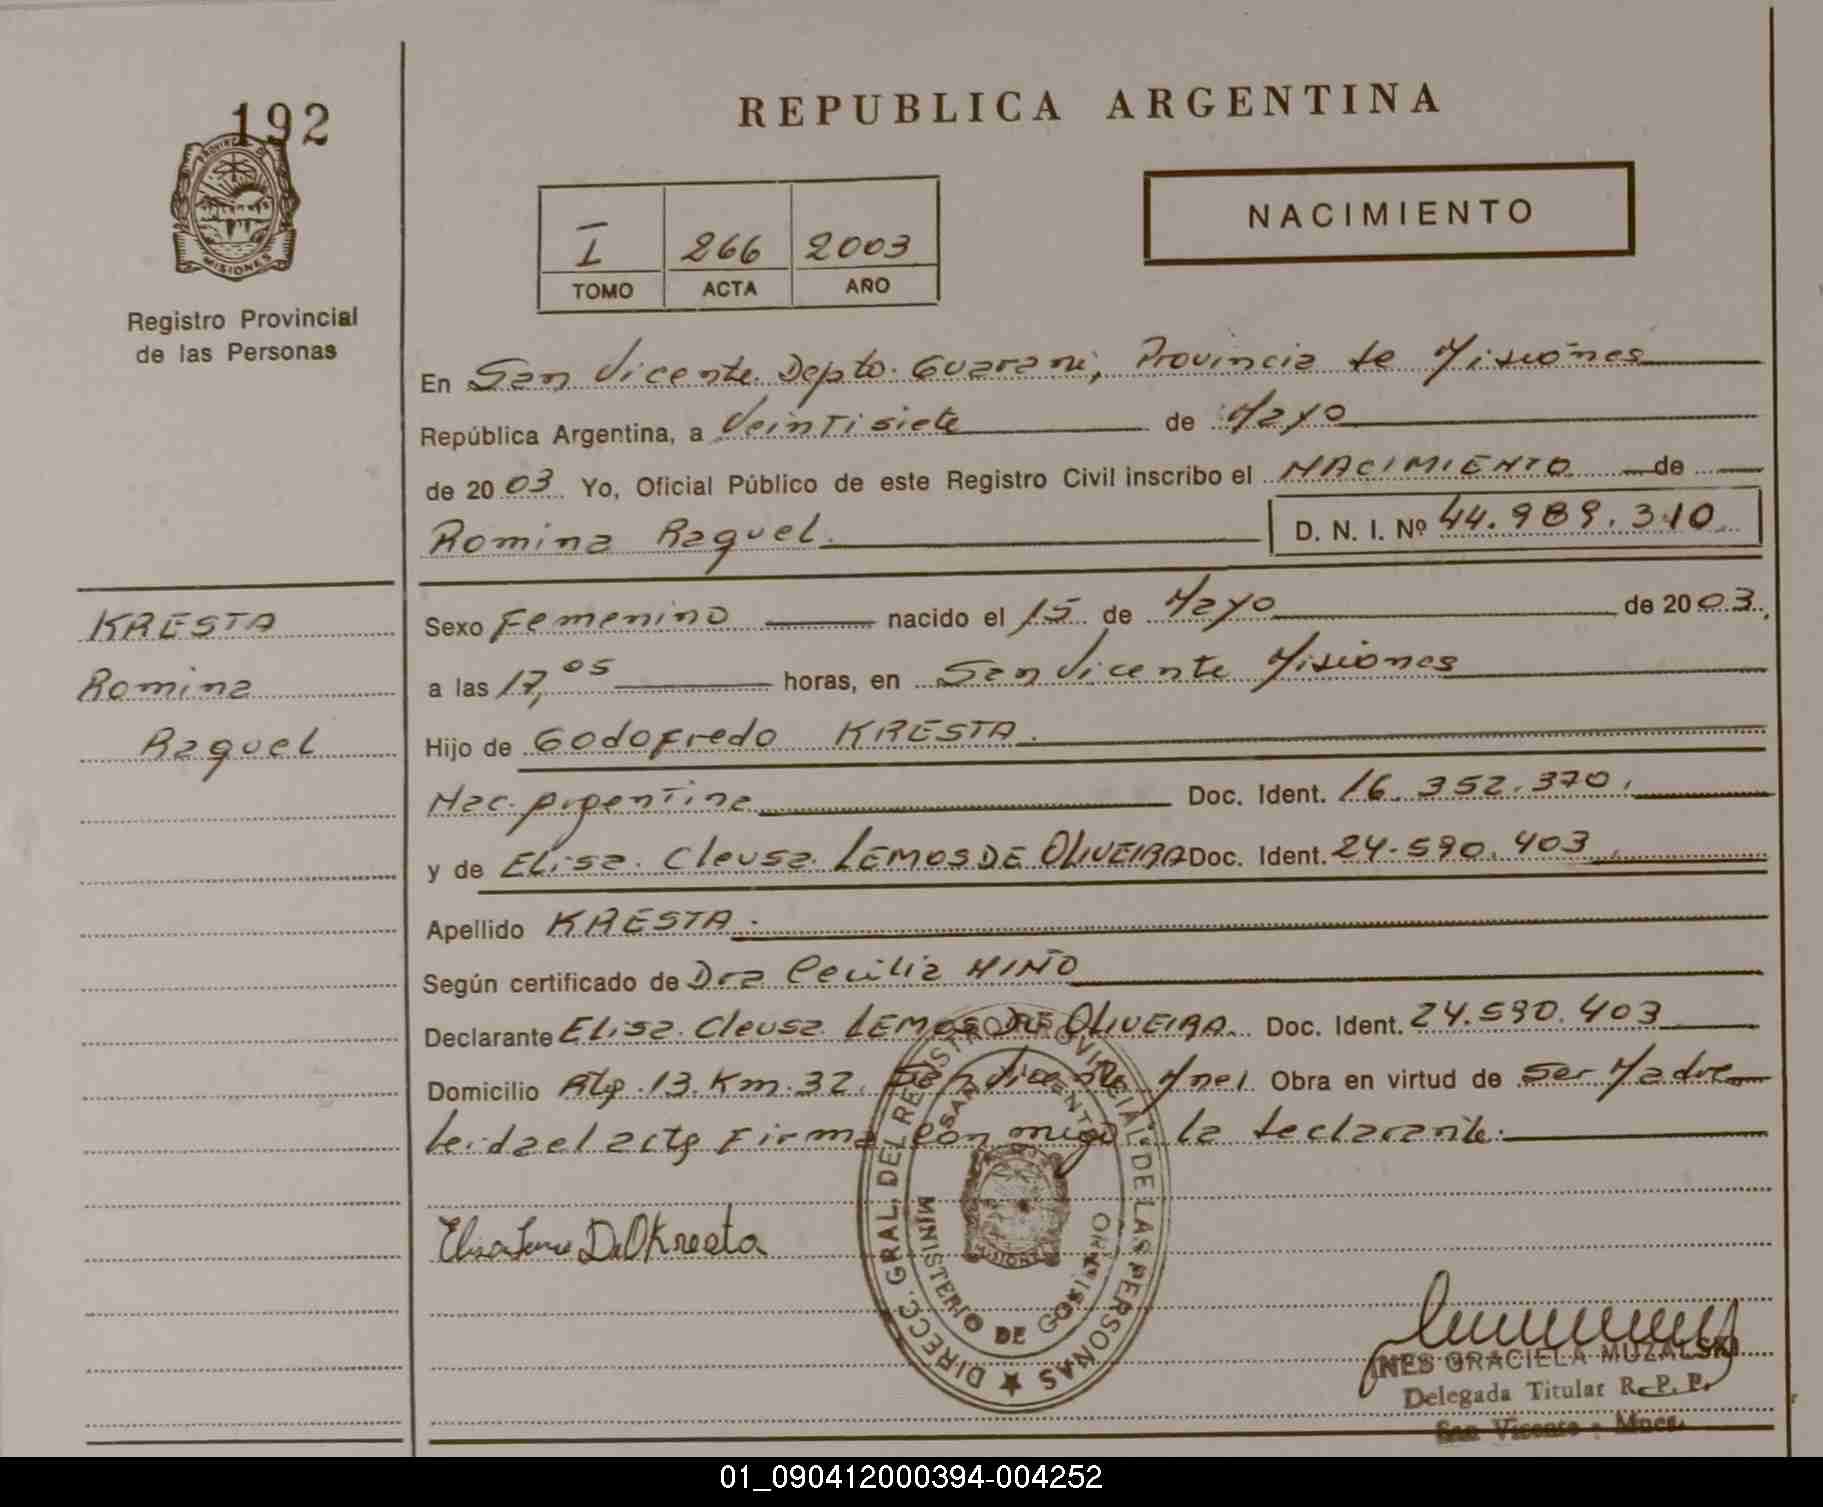 192
REPUBLICA ARGENTINA
PROVINCIA DE
MISIONES
Registro Provincial
de las Personas
I 266 2003
TOMO ACTA AÑO
NACIMIENTO
En San Vicente Depto. Guarani, Provincia de Misiones
República Argentina, a Veintisiete de Mayo
de 2003 Yo, Oficial Público de este Registro Civil inscribo el NACIMIENTO de
Romina Raquel. D. N. I. Nº 44.989.310
KRESTA
Romina
Raquel
Sexo Femenino nacido el 15 de Mayo de 2003.
a las 17,05 horas, en San Vicente Misiones
Hijo de Godofredo KRESTA.
Nac. Argentina Doc. Ident. 16.352.370.
y de Elisa Cleusa LEMOS DE OLIVEIRA Doc. Ident. 24.590.403
Apellido KRESTA.
Según certificado de Dra Cecilia MIÑO
Declarante Elisa Cleusa LEMOS DE OLIVEIRA. Doc. Ident. 24.590.403
Domicilio Km. 32. San Vicente Mnes. Obra en virtud de ser Madre
leida el acta Firma con migo la declarante.
DIRECC. GRAL. DEL REGISTRO PROVINCIAL DE LAS PERSONAS
SAN VICENTE
MISIONES
MINISTERIO DE GOBIERNO
INES GRACIELA MUZALSKI
Delegada Titular R. P. P.
San Vicente - Mnes.
01_090412000394-004252